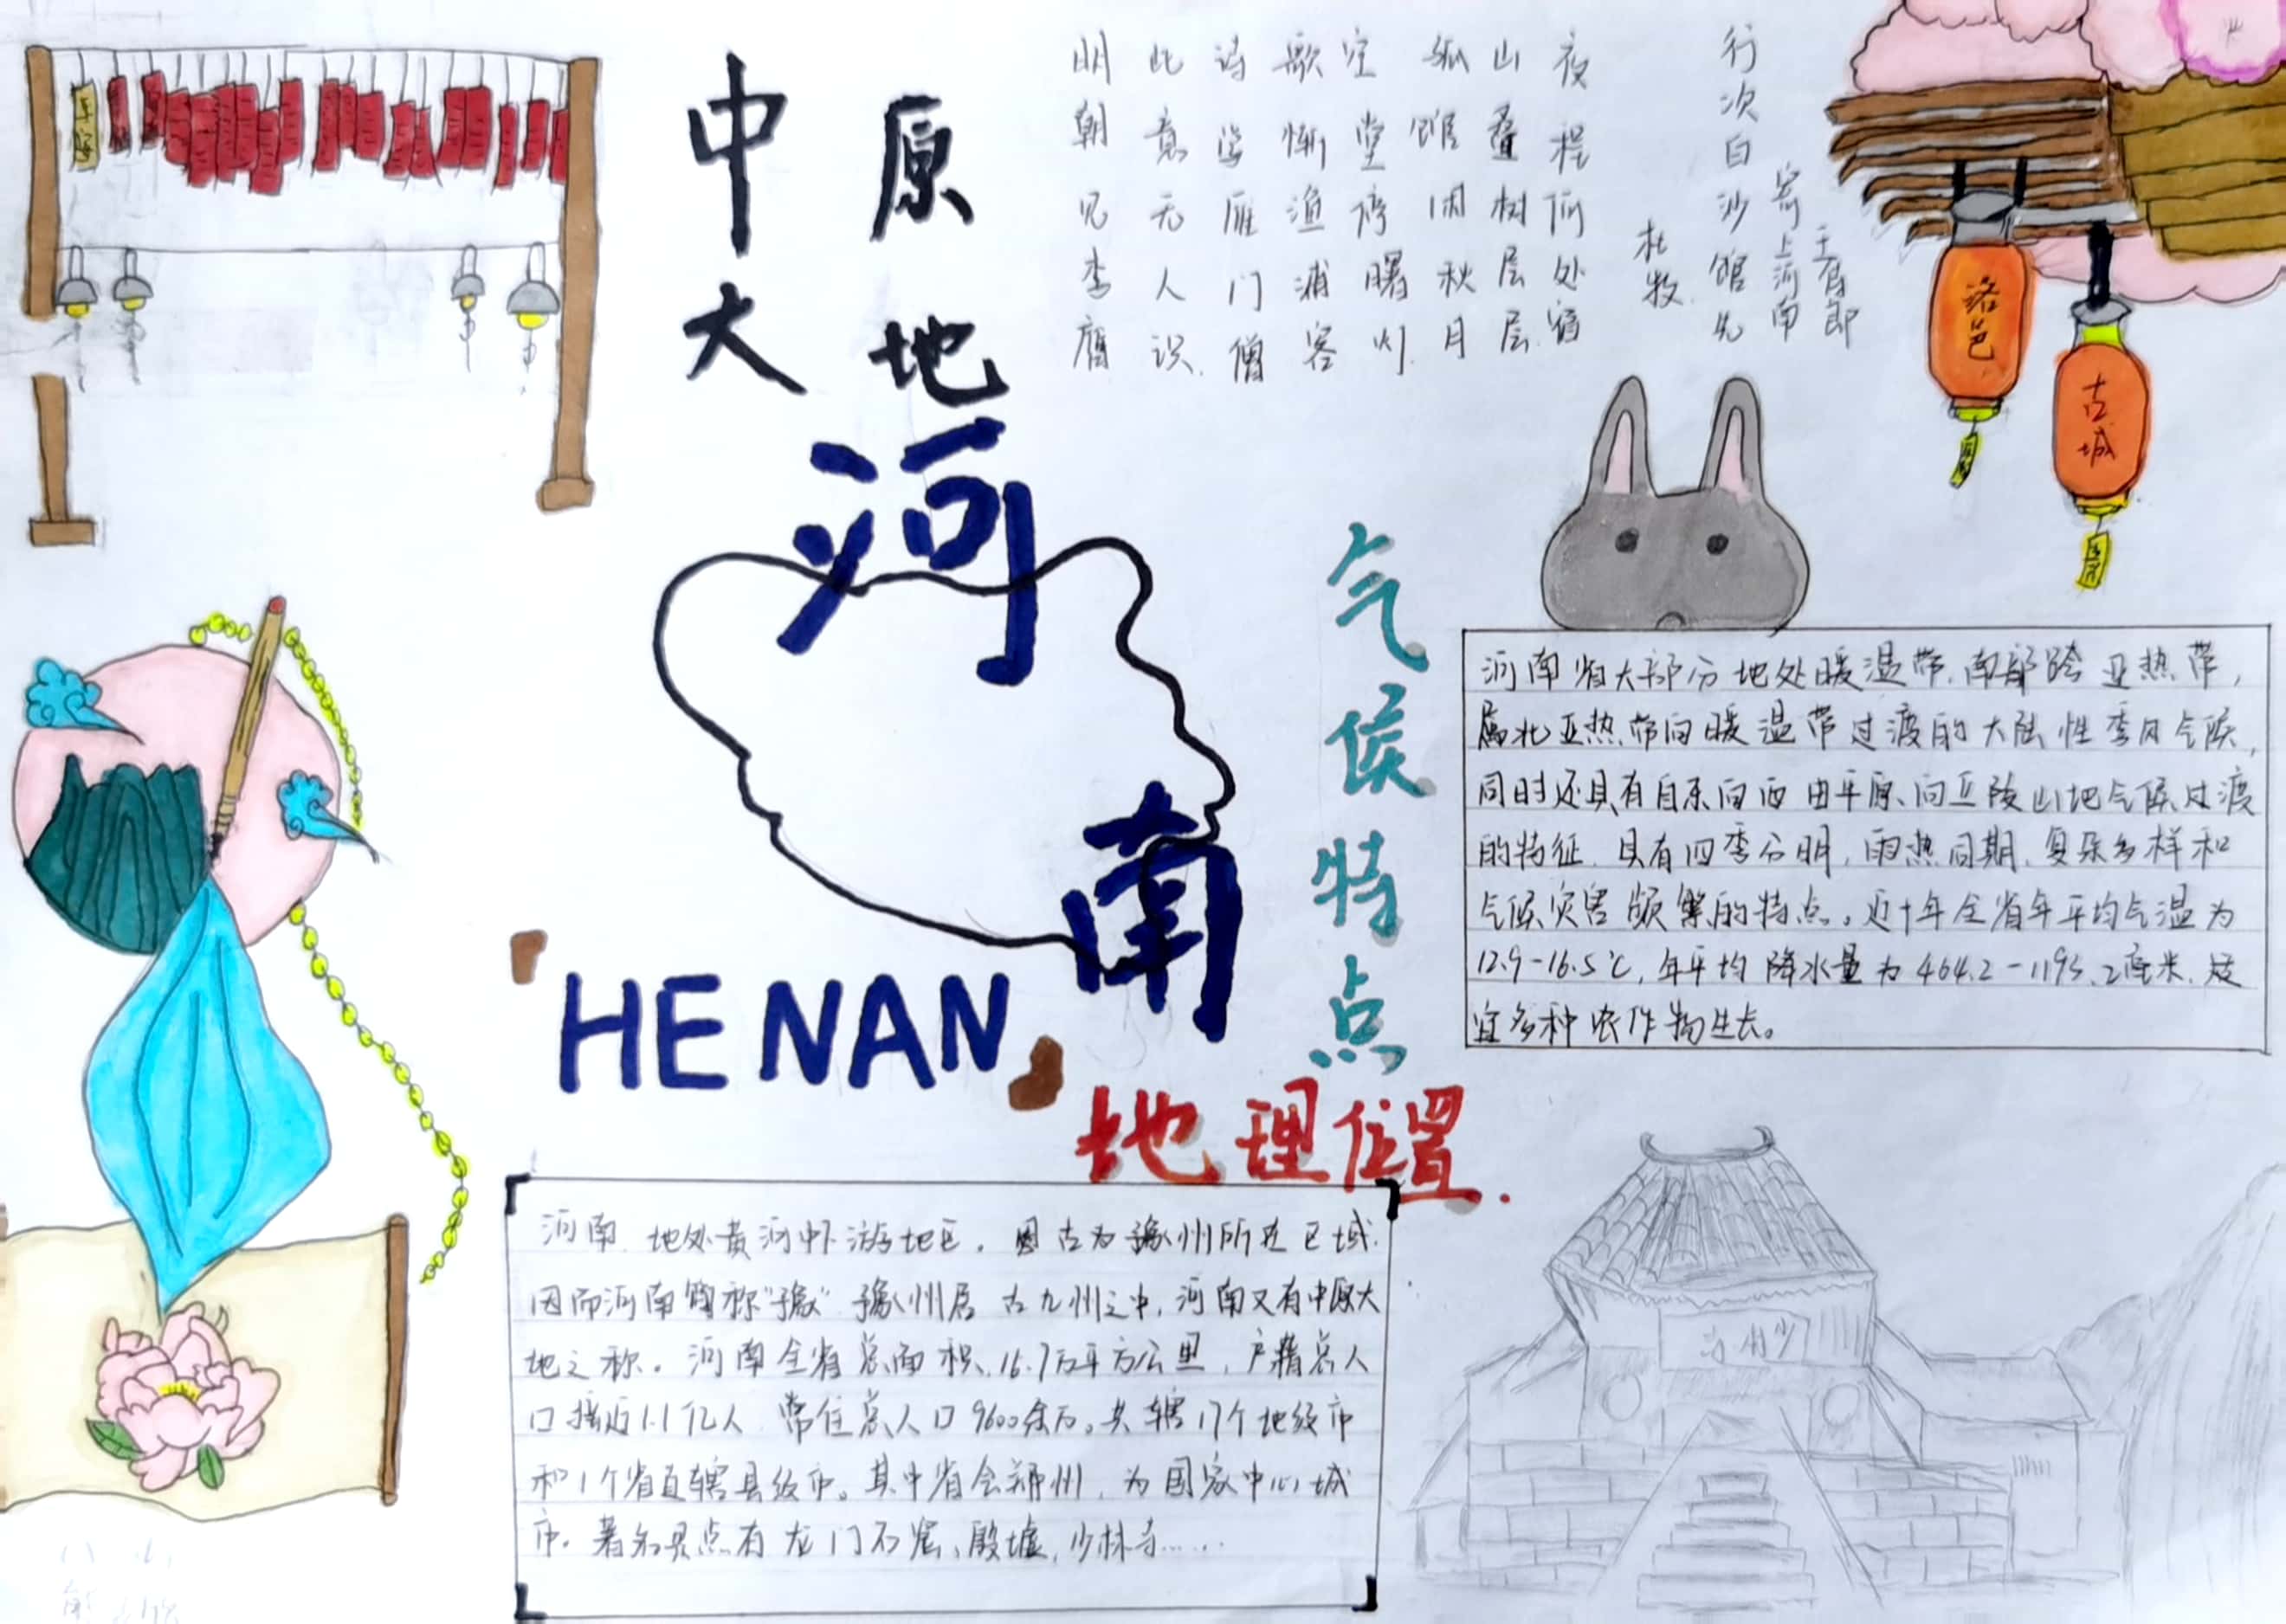 中原
大地
河南
HE NAN
行次白沙馆先
寄上河南
王侍郎
杜牧
夜程何处宿
山叠树层层
孤馆闲秋月
空堂停曙灯
歌惭渔浦客
诗学雁门僧
此意无人识
明朝见李膺
洛邑
古城
气候特点
河南省大部分地处暖温带,南部跨亚热带,
属北亚热带向暖温带过渡的大陆性季风气候,
同时还具有自东向西由平原向丘陵山地气候过渡
的特征,具有四季分明,雨热同期,复杂多样和
气候灾害频繁的特点。近十年全省年平均气温为
12.9-16.5℃,年平均降水量为464.2-1193.2厘米,适
宜多种农作物生长。
地理位置.
河南,地处黄河中下游地区。因古为豫州所在区域.
因而河南简称“豫”豫州居古九州之中,河南又有中原大
地之称。河南全省总面积16.7万平方公里,户籍总人
口接近1.1亿人,常住总人口9600余万。共辖17个地级市
和1个省直辖县级市。其中省会郑州,为国家中心城
市。著名景点有龙门石窟、殷墟,少林寺......